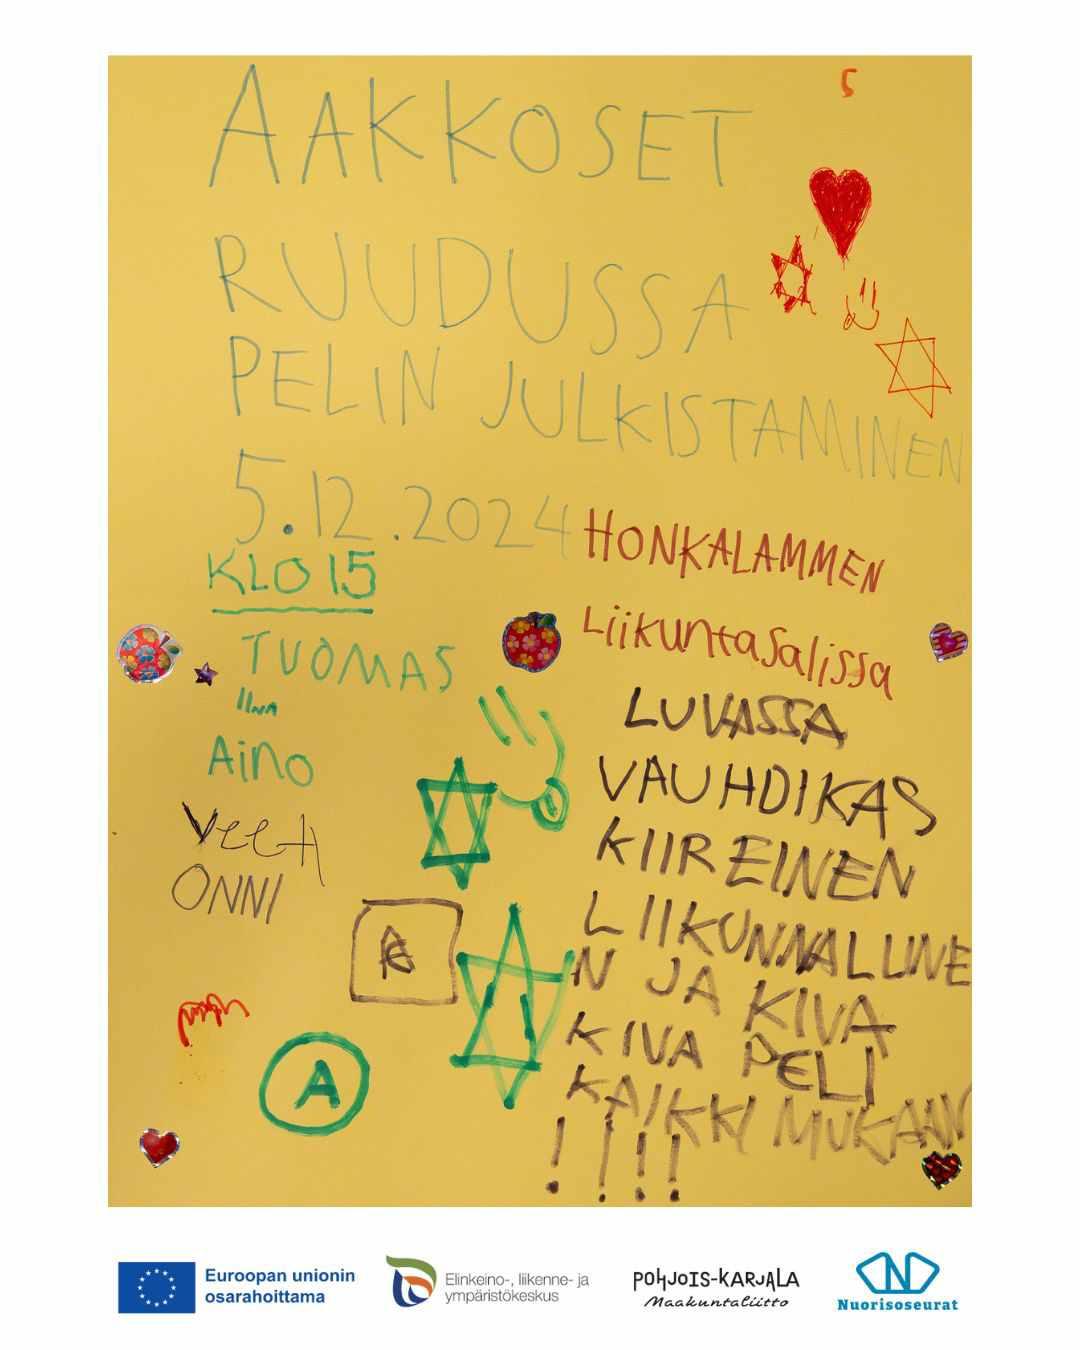 AAKKOSET
RUUDUSSA
PELIN JULKISTAMINEN
5.12.2024
KLO 15
HONKALAMMEN
Liikuntasalissa
TUOMAS
IINA
AiNO
VeetI
ONNI
LUVASSA
VAUHDIKAS
KIIREINEN
LIIKUNNALLINE
N JA KIVA
KIVA PELI
KAIKKI MUKAAN
!!!!
A
Euroopan unionin
osarahoittama
Elinkeino-, liikenne- ja
ympäristökeskus
POHJOIS-KARJALA
Maakuntaliitto
N
Nuorisoseurat